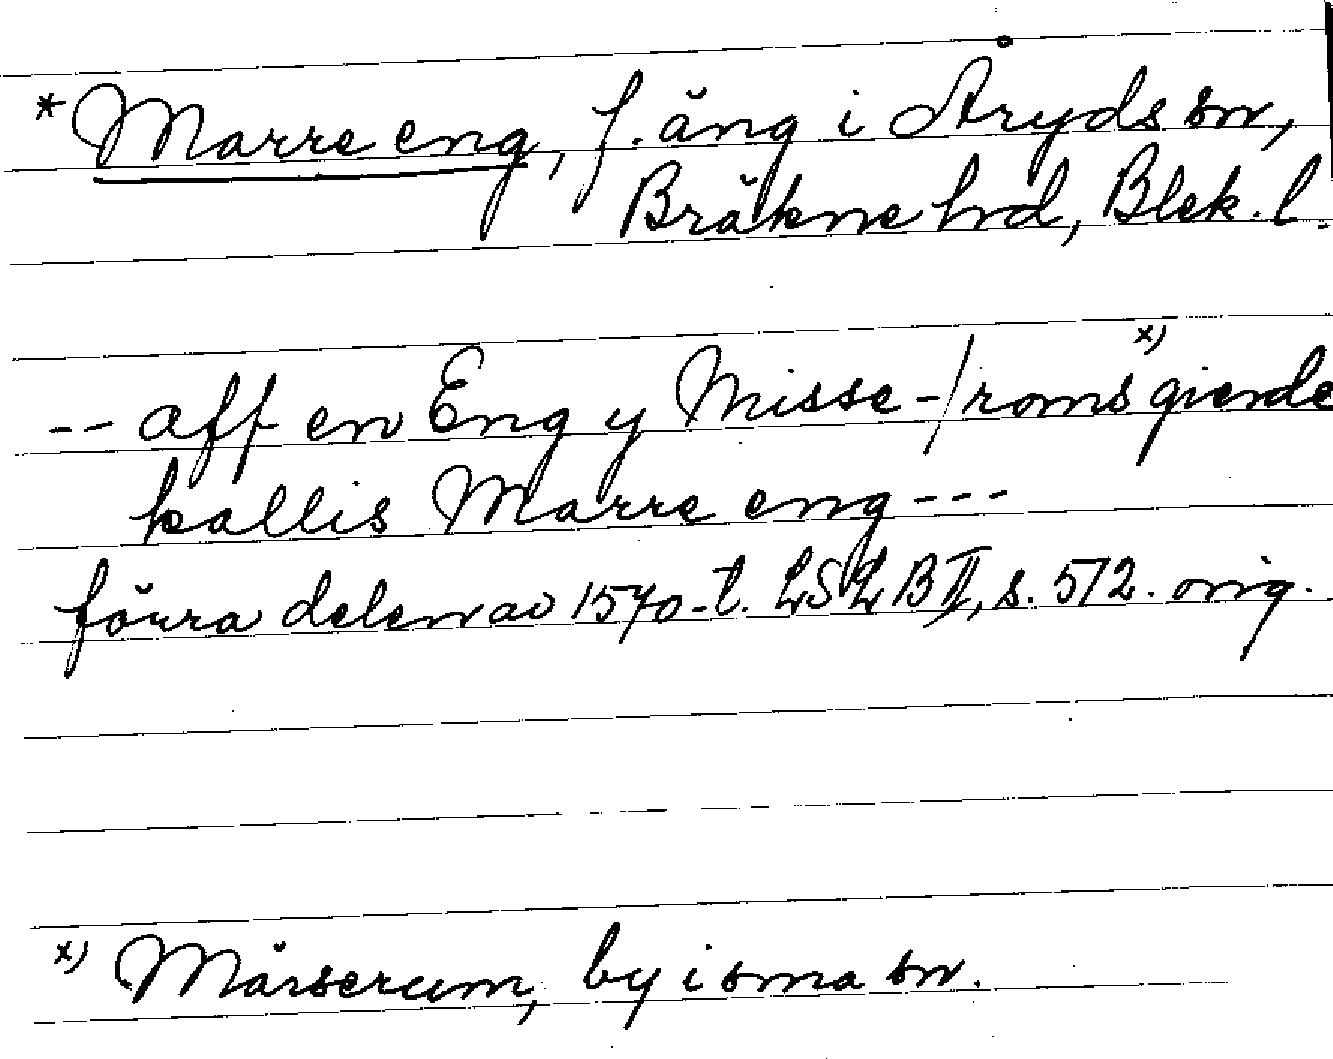 *Marre eng, f. äng i Åryds sn,
Bräkne hd, Blek. l.
-- aff en Eng y Misse-/roms x) gierde
kallis Marre eng ---
förra delen av 1570-t. LSLB II, s. 572. orig.
x) Mörserum, by i sma sn.